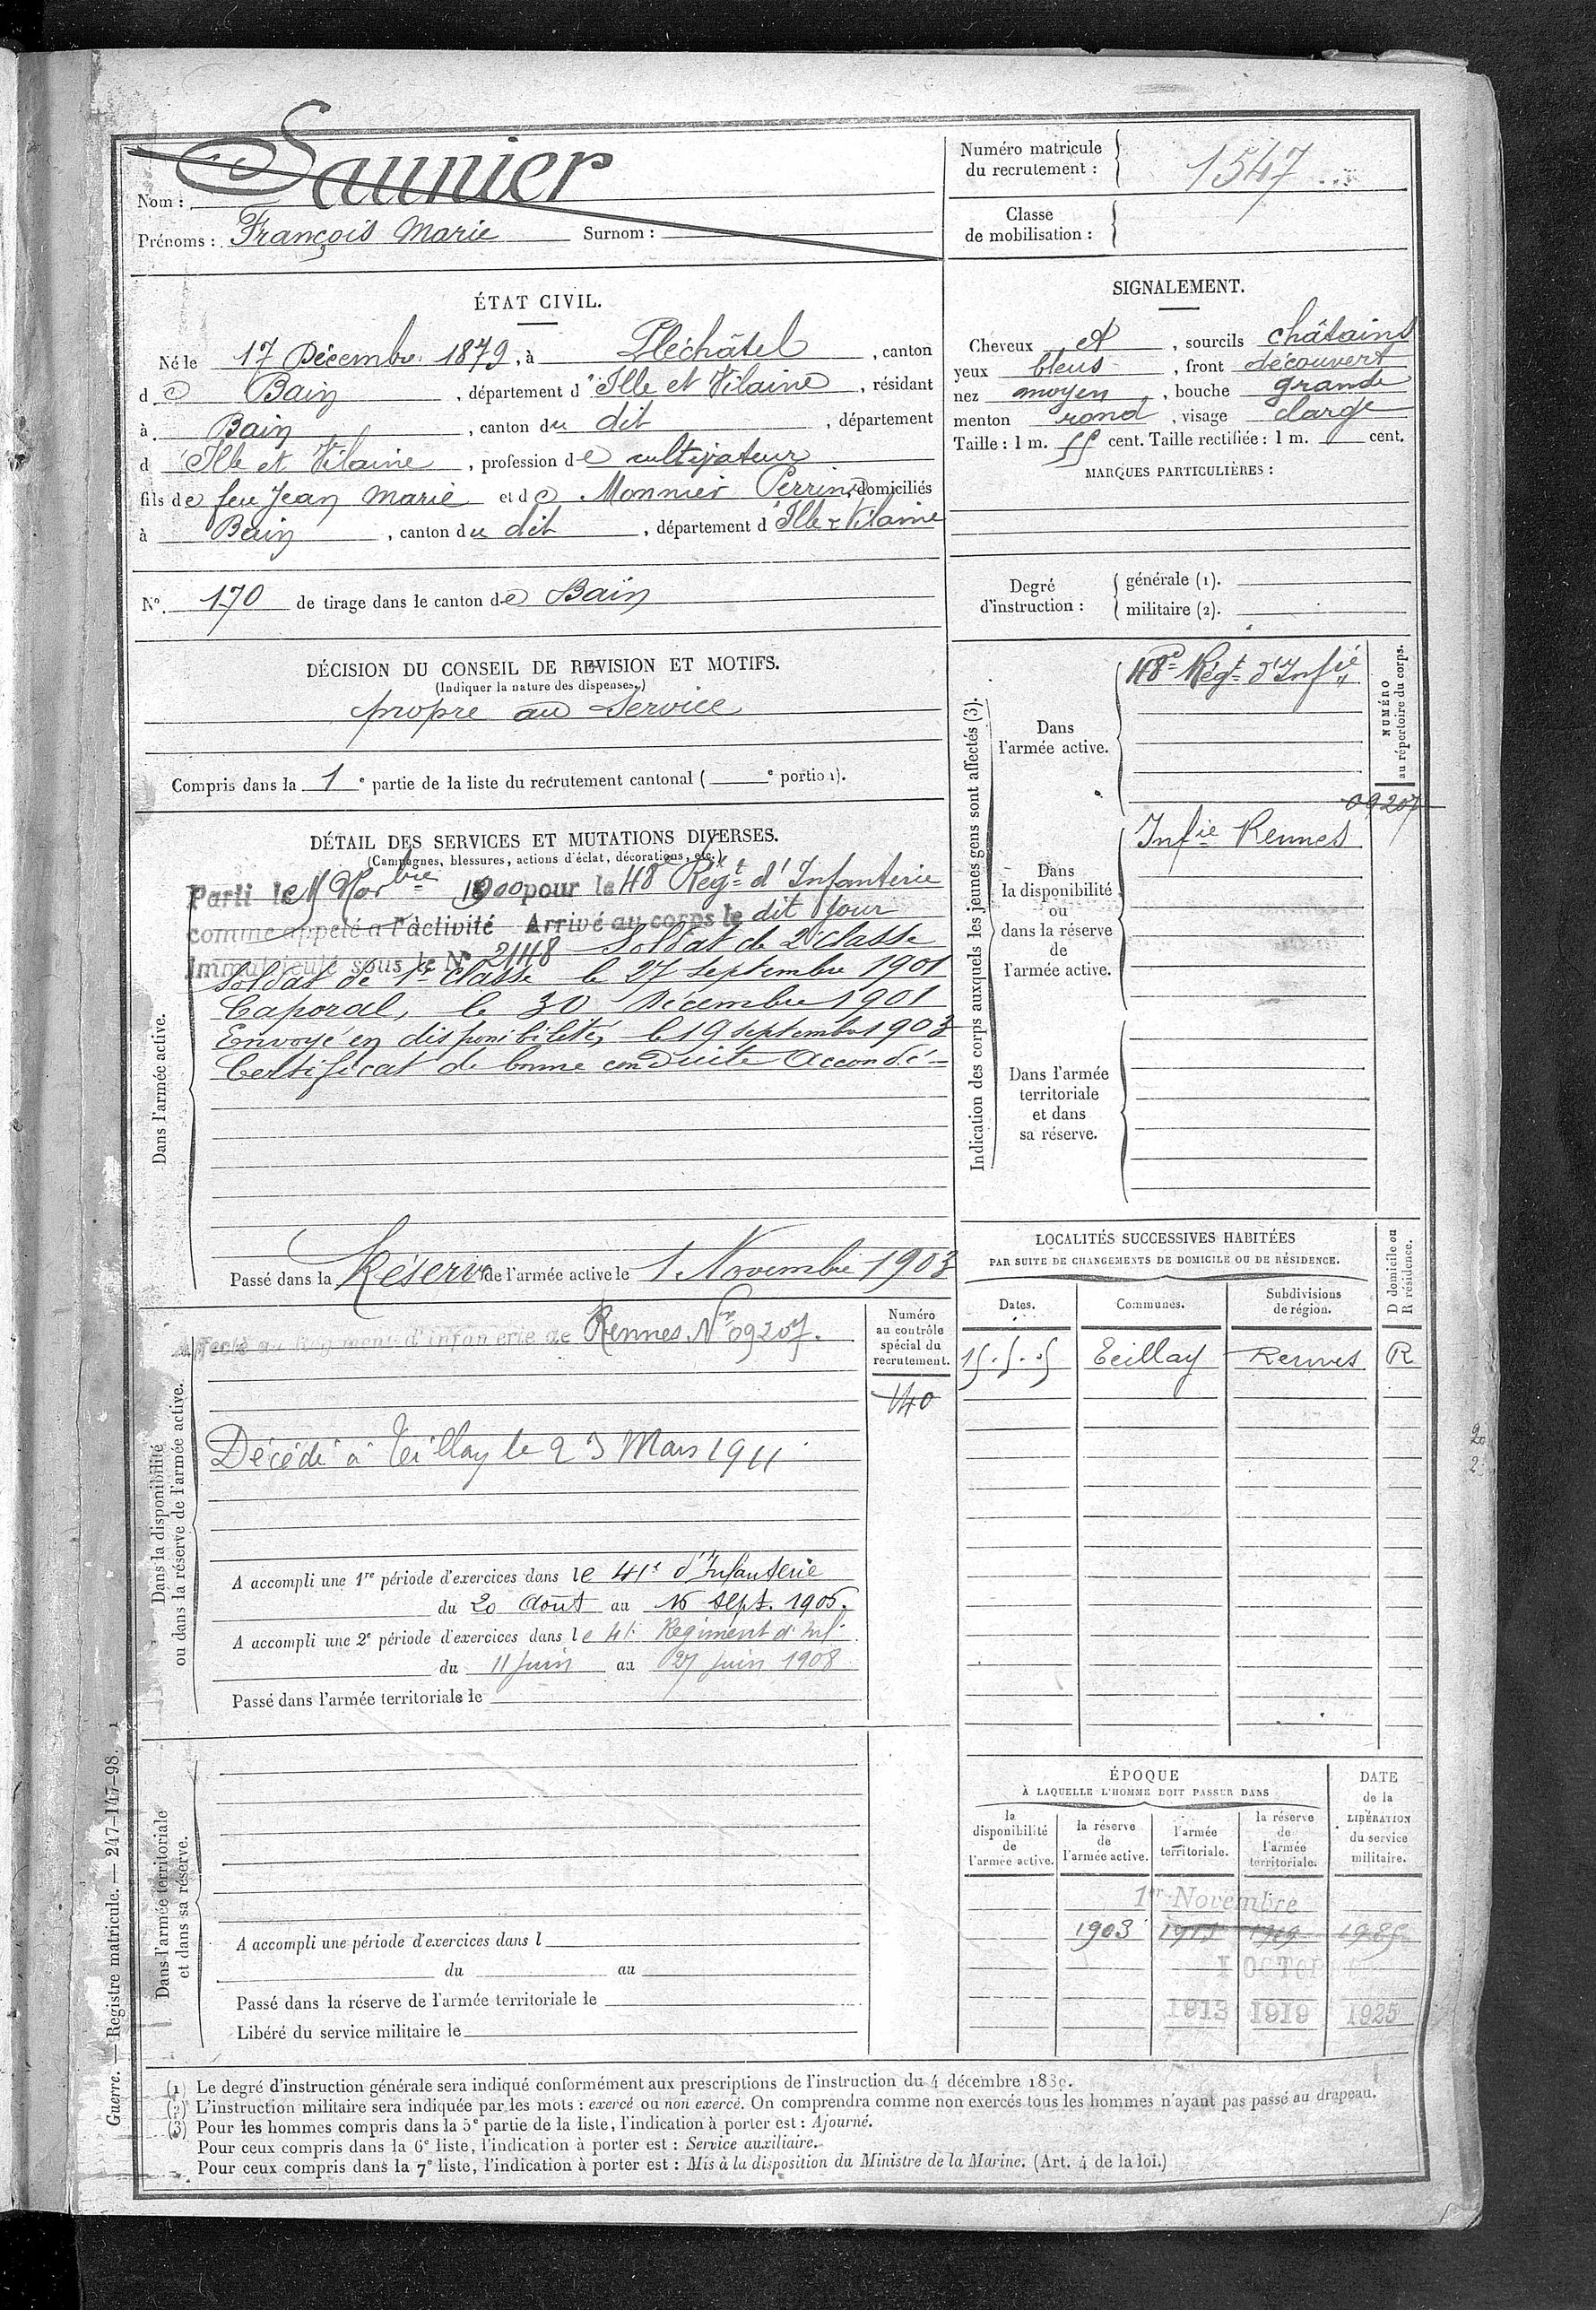 Nom : Saunier
Prénoms : François Marie Surnom :
Numéro matricule du recrutement : 1547
Classe de mobilisation :
ÉTAT CIVIL.
Né le 17 Décembre 1879, à Pléchâtel, canton
de Bain, département d'Ille et Vilaine, résidant
à Bain, canton du dit, département
d'Ille et Vilaine, profession de cultivateur
fils de feu Jean Marie et de Monnier Perrine, domiciliés
à Bain, canton du dit, département d'Ille & Vilaine
N° 170 de tirage dans le canton de Bain
DÉCISION DU CONSEIL DE REVISION ET MOTIFS.
(Indiquer la nature des dispenses.)
propre au service
Compris dans la 1e partie de la liste du recrutement cantonal ( e portion).
DÉTAIL DES SERVICES ET MUTATIONS DIVERSES.
(Campagnes, blessures, actions d'éclat, décorations, etc.)
Dans l'armée active.
Parti le Novbre 1900 pour le 48e Régt d'Infanterie
comme appelé à l'activité Arrivé au corps le dit jour
Immatriculé sous le N° 2148 Soldat de 2e classe
Soldat de 1re classe le 27 septembre 1901
Caporal, le 30 Décembre 1901
Envoyé en disponibilité, le 19 septembre 1903
Certificat de bonne conduite Accordé
Passé dans la Réserve de l'armée active le 1 Novembre 1903
Dans la disponibilité ou dans la réserve de l'armée active.
Affecté au Régiment d'infanterie de Rennes Nº 09207.
Numéro au contrôle spécial du recrutement.
140
Décédé à Teillay le 23 Mars 1911
A accompli une 1re période d'exercices dans le 41e d'Infanterie
du 20 Août au 16 sept. 1905.
A accompli une 2e période d'exercices dans le 41e Régiment d'Inf.
du 11 juin au 27 juin 1908
Passé dans l'armée territoriale le
Dans l'armée territoriale et dans sa réserve.
A accompli une période d'exercices dans l
du au
Passé dans la réserve de l'armée territoriale le
Libéré du service militaire le
SIGNALEMENT.
Cheveux et, sourcils châtains
yeux bleus, front découvert
nez moyen, bouche grande
menton rond, visage large
Taille : 1 m. 55 cent. Taille rectifiée : 1 m. cent.
MARQUES PARTICULIÈRES :
Degré d'instruction :
générale (1).
militaire (2).
Indication des corps auxquels les jeunes gens sont affectés (3).
NUMÉRO au répertoire du corps.
Dans l'armée active.
48e Régt d'Infie
09207
Dans la disponibilité ou dans la réserve de l'armée active.
Infie Rennes
Dans l'armée territoriale et dans sa réserve.
LOCALITÉS SUCCESSIVES HABITÉES
PAR SUITE DE CHANGEMENTS DE DOMICILE OU DE RÉSIDENCE.
D domicile ou R résidence.
Dates. Communes. Subdivisions de région.
15.5.5 Teillay Rennes R
ÉPOQUE
À LAQUELLE L'HOMME DOIT PASSER DANS
DATE de la LIBÉRATION du service militaire.
la disponibilité de l'armée active.
la réserve de l'armée active.
l'armée territoriale.
la réserve de l'armée territoriale.
1er Novembre
1903 1919
1 OCTOB
1913 1919 1925
(1) Le degré d'instruction générale sera indiqué conformément aux prescriptions de l'instruction du 4 décembre 1889.
(2) L'instruction militaire sera indiquée par les mots : exercé ou non exercé. On comprendra comme non exercés tous les hommes n'ayant pas passé au drapeau.
(3) Pour les hommes compris dans la 5e partie de la liste, l'indication à porter est : Ajourné.
Pour ceux compris dans la 6e liste, l'indication à porter est : Service auxiliaire.
Pour ceux compris dans la 7e liste, l'indication à porter est : Mis à la disposition du Ministre de la Marine. (Art. 4 de la loi.)
Guerre. — Registre matricule. — 247-147-98. 1